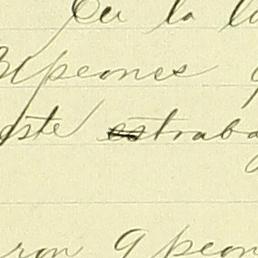 En la l
3 peones
este estraba
ron 9 peon